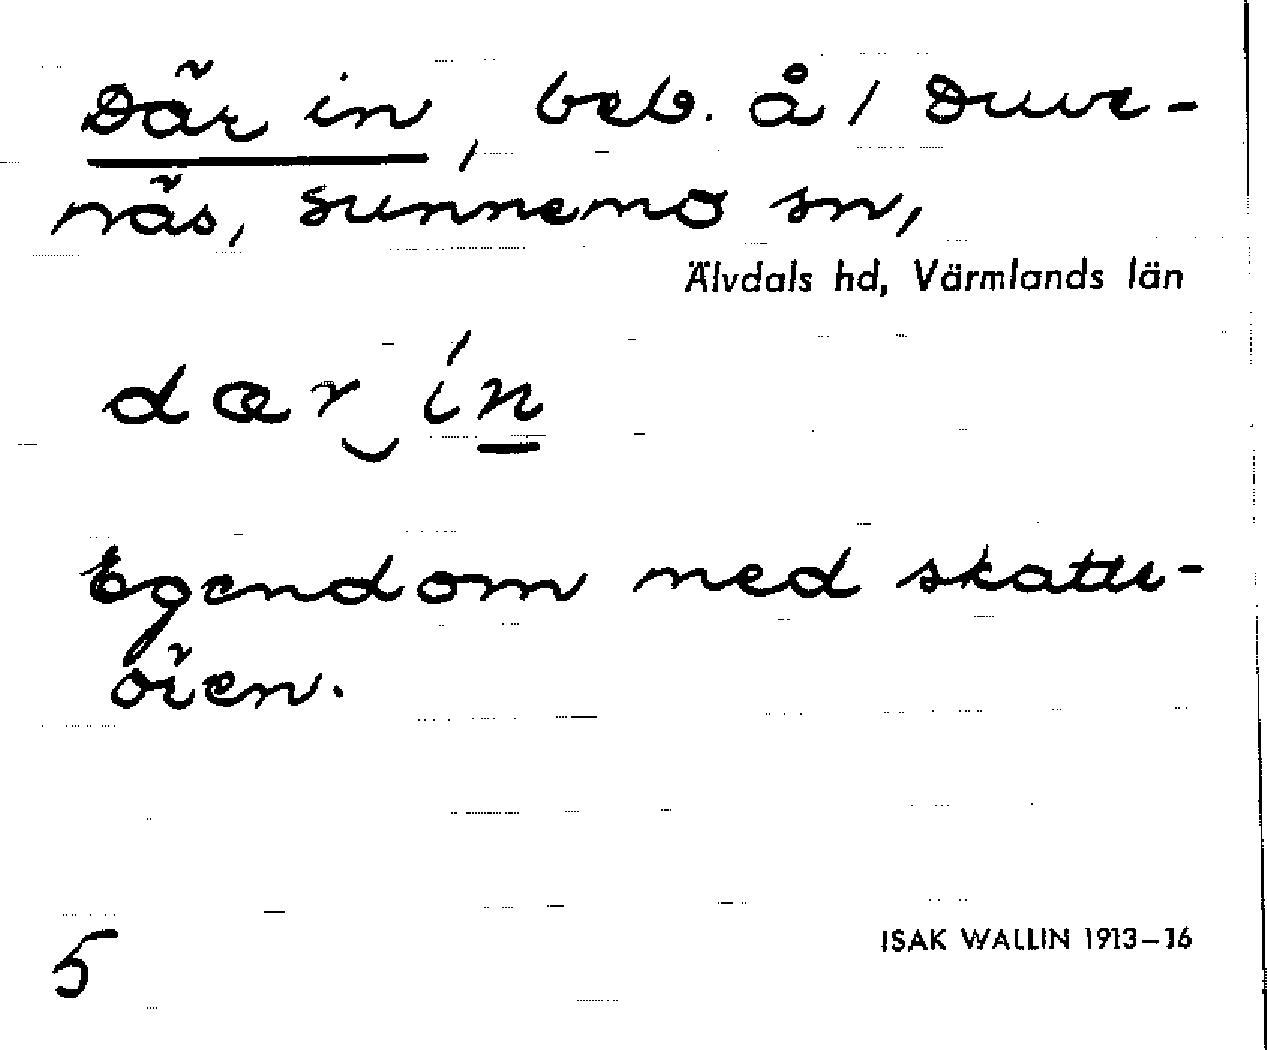 Där in, beb. å / Duve-
näs, Sunnemo sn,
Älvdals hd, Värmlands län
dær‿í<u>n</u>
Egendom med skatte-
öien.
5
ISAK WALLIN 1913–16